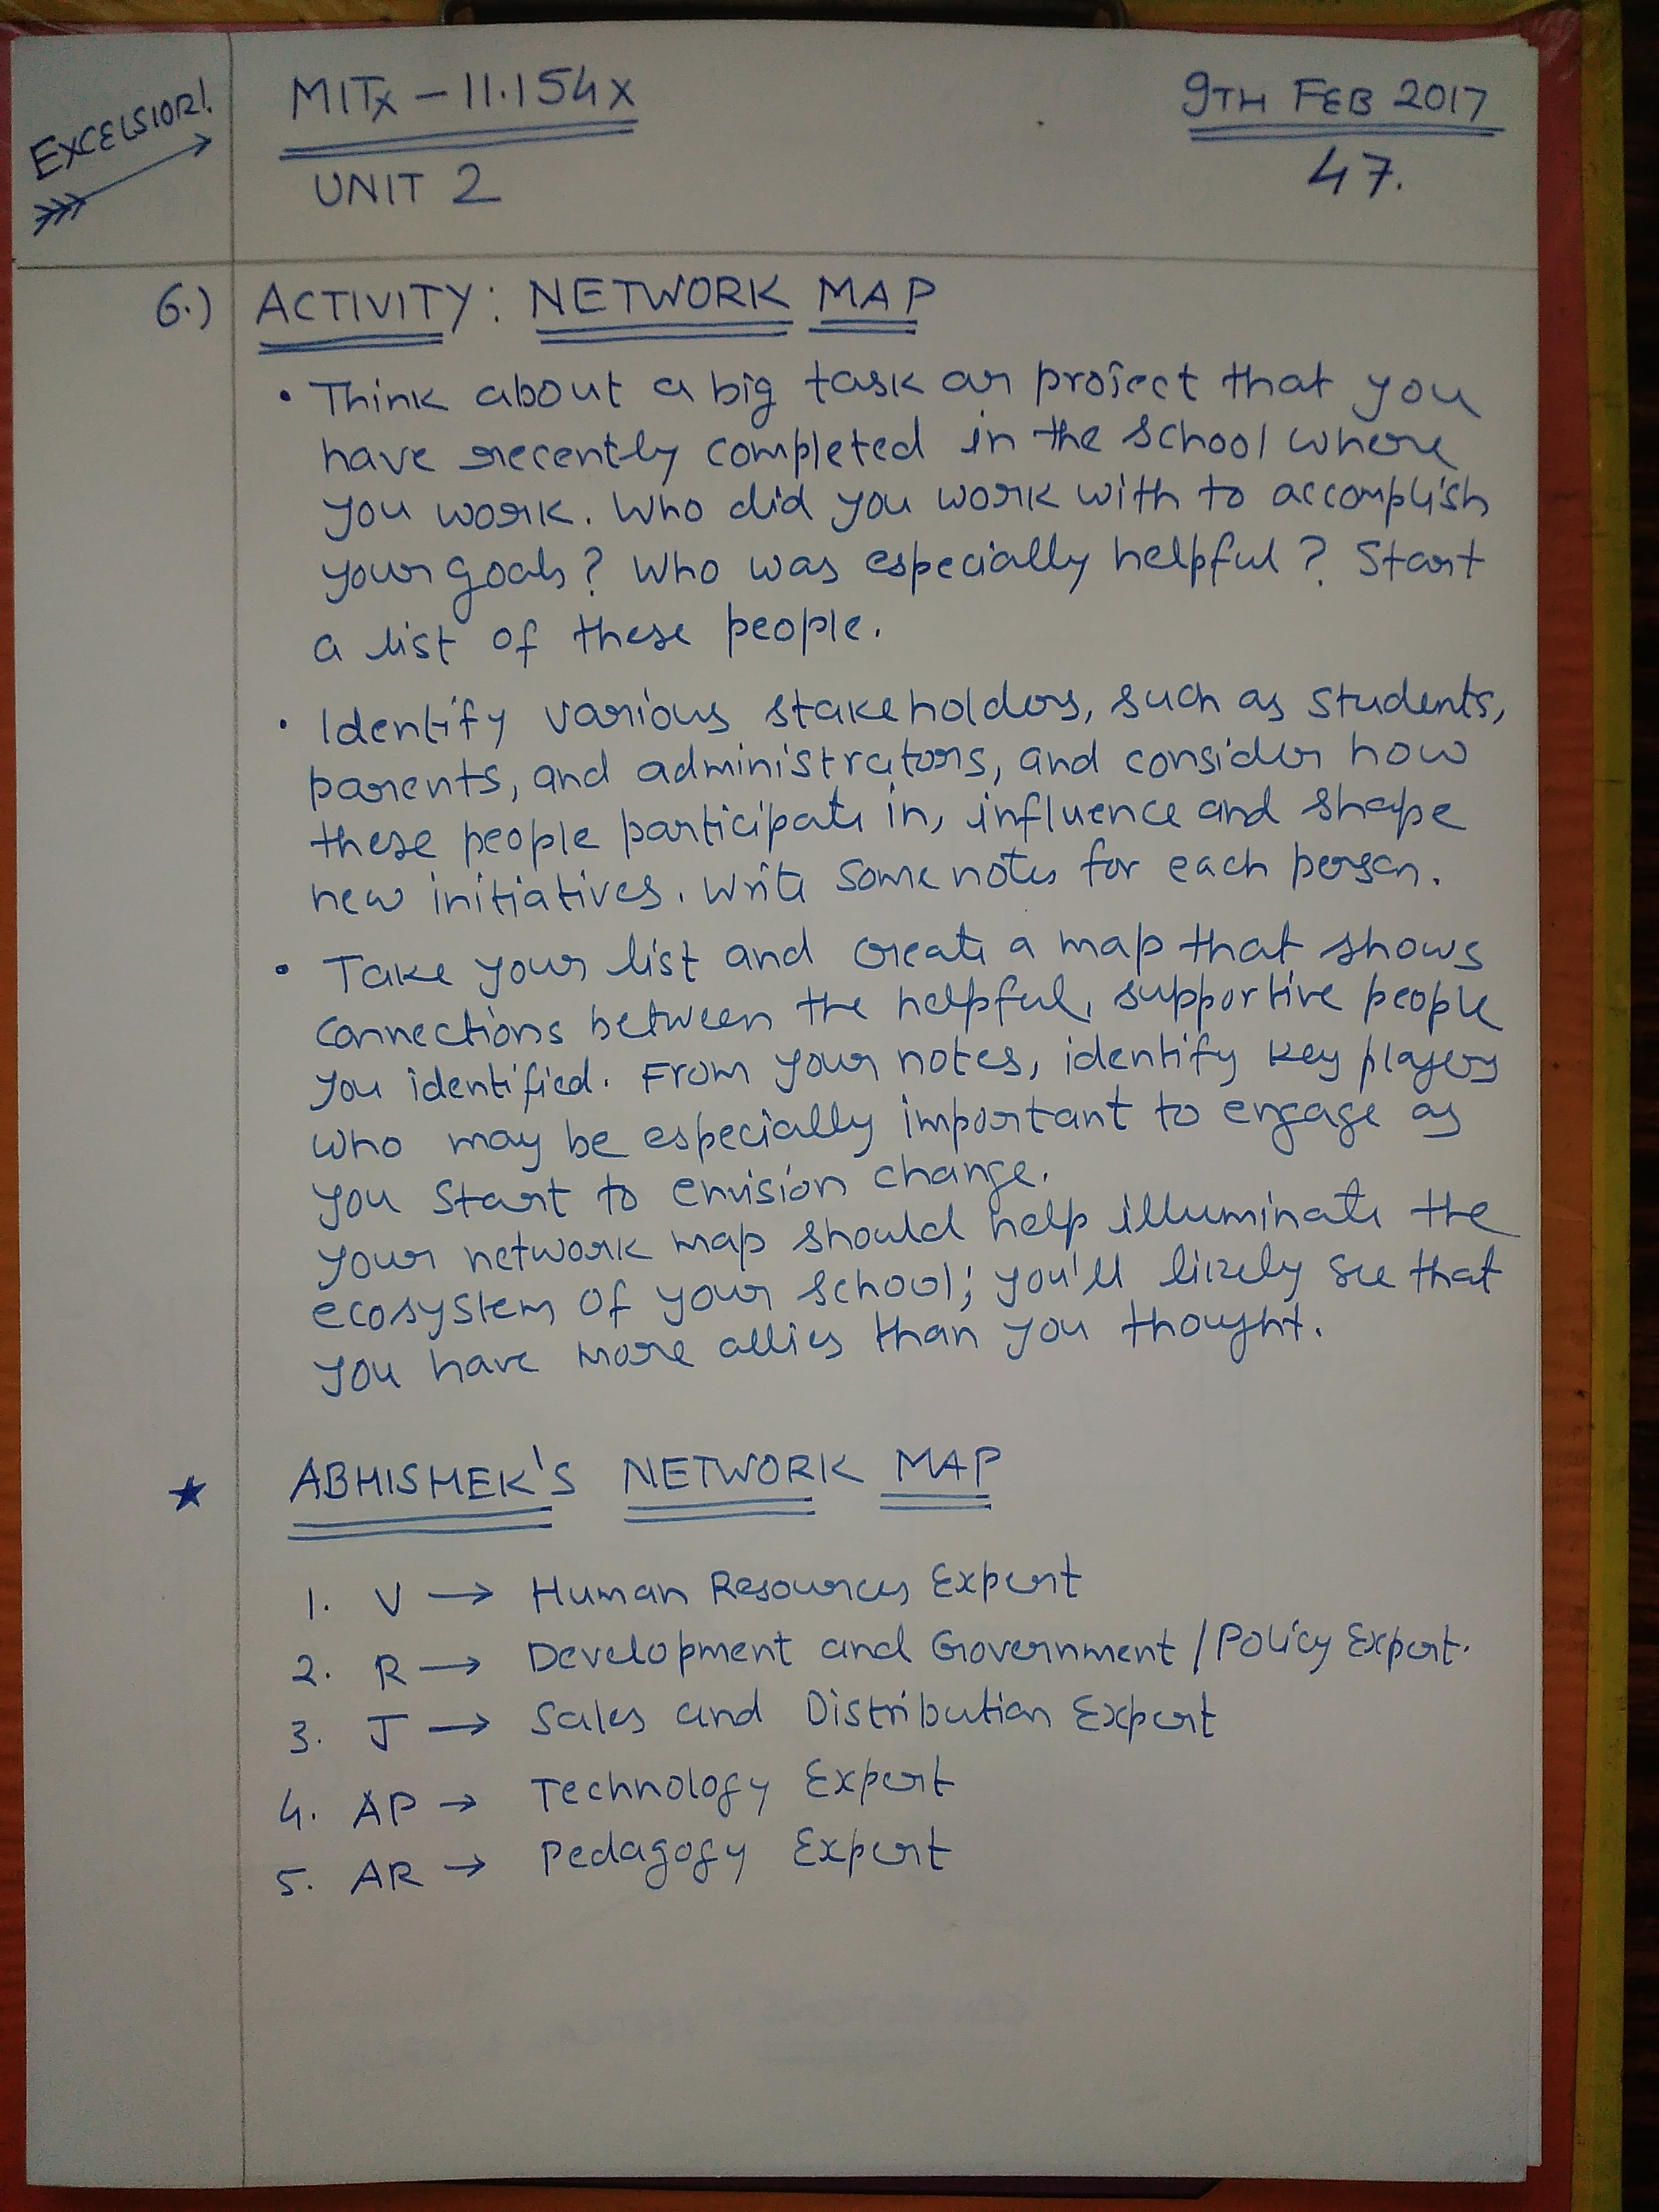 EXCELSIOR!
MITx - 11.154x
9TH FEB 2017
UNIT 2
47.
6.) ACTIVITY: NETWORK MAP
• Think about a big task or project that you
have recently completed in the school where
you work. Who did you work with to accomplish
your goals? Who was especially helpful? Start
a list of these people.
• Identify various stakeholders, such as students,
parents, and administrators, and consider how
these people participate in, influence and shape
new initiatives. Write some notes for each person.
• Take your list and create a map that shows
connections between the helpful, supportive people
you identified. From your notes, identify key players
who may be especially important to engage as
you start to envision change.
Your network map should help illuminate the
ecosystem of your school; you'll likely see that
you have more allies than you thought.
★ ABHISHEK'S NETWORK MAP
1. V → Human Resources Expert
2. R → Development and Government / Policy Expert.
3. J → Sales and Distribution Expert
4. AP → Technology Expert
5. AR → Pedagogy Expert